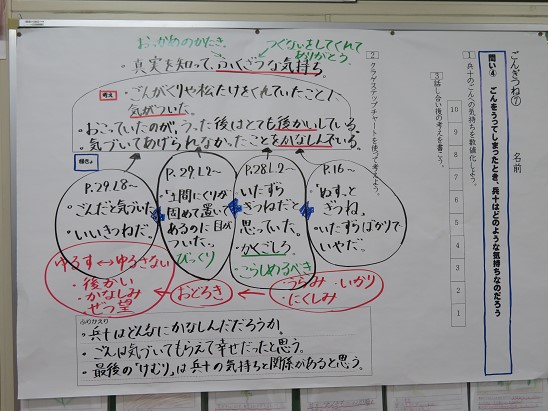 ごんぎつね⑦ 名前
問い④ ごんをうってしまったとき、兵十はどのような気持ちなのだろう
1 兵十のごんへの気持ちを数値化しよう。
10 9 8 7 6 5 4 3 2 1
3 話し合い後の考えを書こう。
2 クラゲステップチャートを使って考えよう。
おっかあのかたき。
つぐないをしてくれて
ありがとう。
・真実を知って、ふくざつな気持ち。
考え
・ごんがくりや松たけをくれていたことに
気がついた。
・おこっていたのが、うった後はとても後かいしている。
・気づいてあげられなかったことをかなしんでいる。
P.29 L8~
・ごんだと気づいた。
・いいきつねだ。
P.29 L2~
・土間にくりが
固めて置いて
あるのに目が
ついた。
びっくり
P.28 L2~
・いたずら
ぎつねだと
思っていた。
・かくごしろ
・こらしめるべき
P.16~
・ぬすっと
ぎつね。
・いたずらばかりで
いやだ。
ゆるす↔ゆるさない
・後かい
・かなしみ
・ぜつ望
おどろき
うらみ・いかり
・にくしみ
ふりかえり
・兵十はどんなにかなしんだだろうか。
・ごんは気づいてもらえて幸せだったと思う。
・最後の「けむり」は兵十の気持ちと関係があると思う。